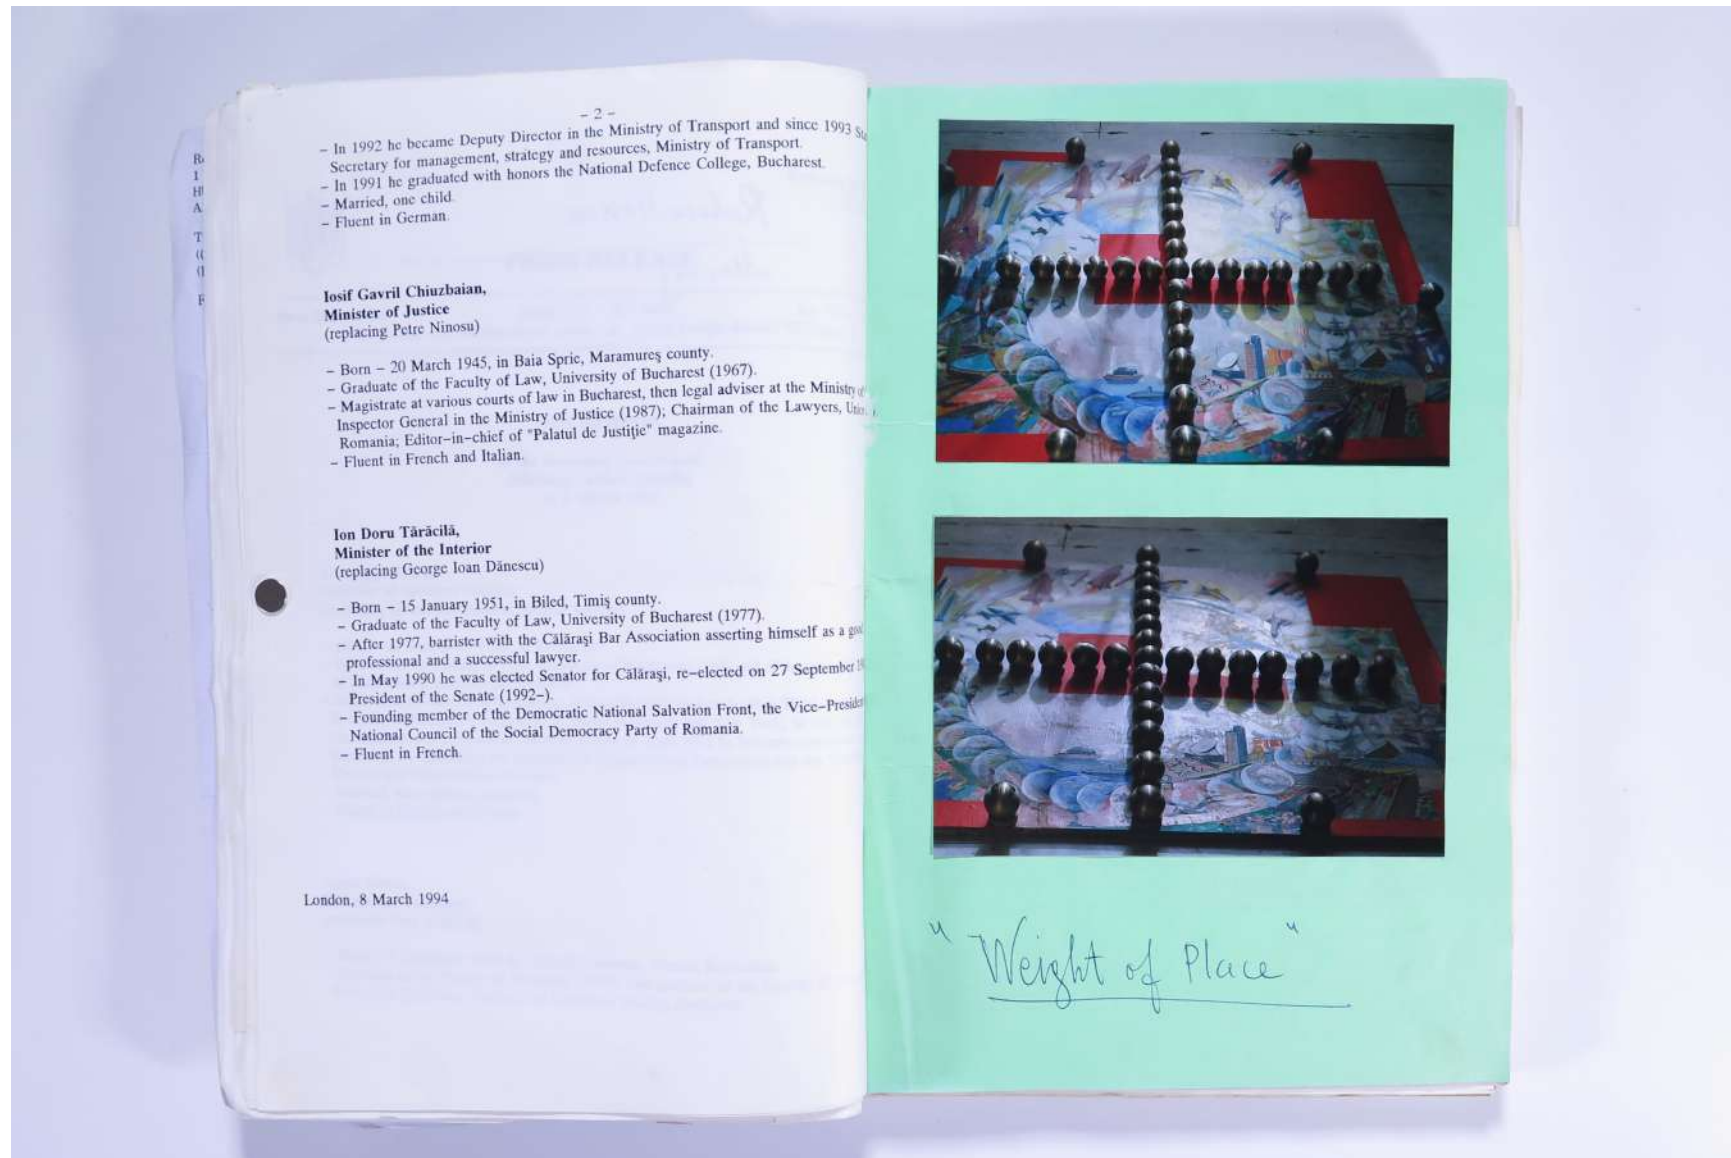 – 2 –
– In 1992 he became Deputy Director in the Ministry of Transport and since 1993
Secretary for management, strategy and resources, Ministry of Transport.
– In 1991 he graduated with honors the National Defence College, Bucharest.
– Married, one child.
– Fluent in German.
Iosif Gavril Chiuzbaian,
Minister of Justice
(replacing Petre Ninosu)
– Born – 20 March 1945, in Baia Sprie, Maramureş county.
– Graduate of the Faculty of Law, University of Bucharest (1967).
– Magistrate at various courts of law in Bucharest, then legal adviser at the Ministry of
Inspector General in the Ministry of Justice (1987); Chairman of the Lawyers,
Romania; Editor–in–chief of "Palatul de Justiţie" magazine.
– Fluent in French and Italian.
Ion Doru Tărăcilă,
Minister of the Interior
(replacing George Ioan Dănescu)
– Born – 15 January 1951, in Biled, Timiş county.
– Graduate of the Faculty of Law, University of Bucharest (1977).
– After 1977, barrister with the Călăraşi Bar Association asserting himself as a
professional and a successful lawyer.
– In May 1990 he was elected Senator for Călăraşi, re–elected on 27 September
President of the Senate (1992–).
– Founding member of the Democratic National Salvation Front, the
National Council of the Social Democracy Party of Romania.
– Fluent in French.
London, 8 March 1994
"Weight of Place"